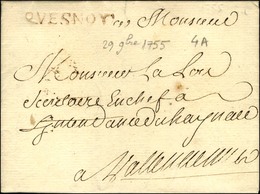 QVESNOY A Monsieur
29 9bre 1755 4A
Monsieur La Lou
Secretaire En chef a
Intendance du haynaut
a Valenciennes